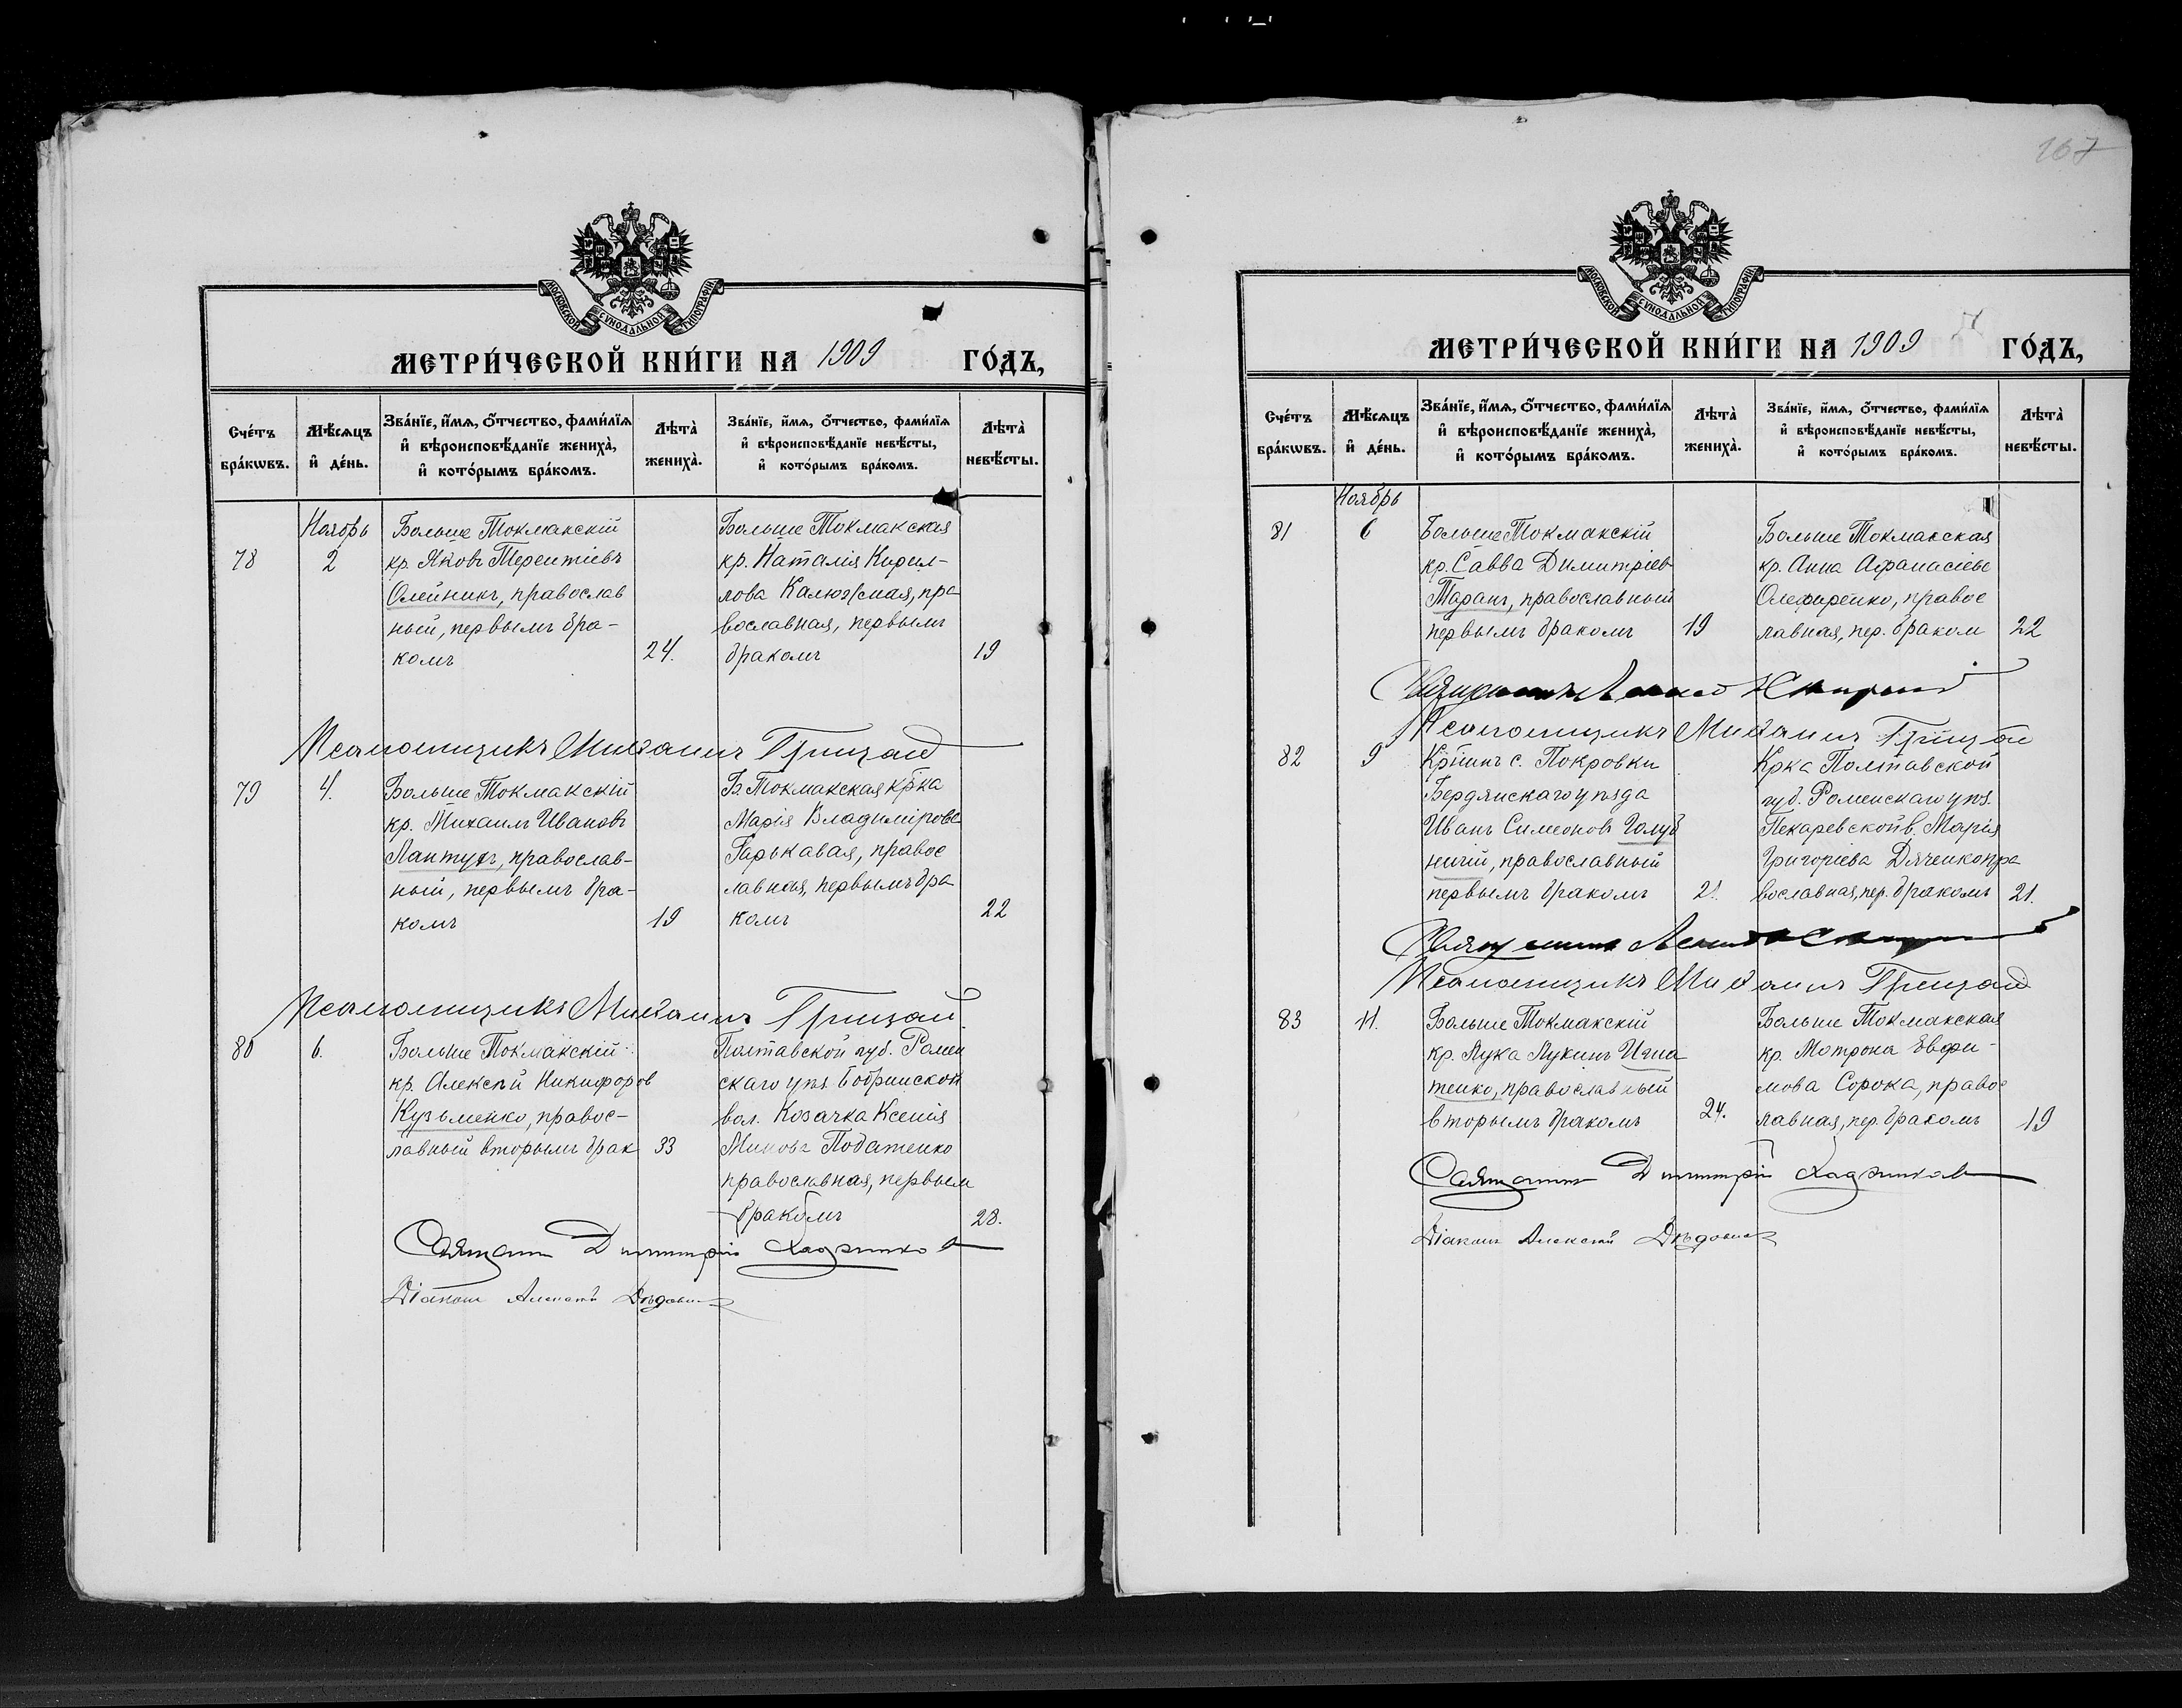 МОСКОВСКОЙ СѴНОДАЛЬНОЙ ТИПОГРАФІИ
МЕТРИ́ЧЕСКОЙ КНИ́ГИ НА 1909 ГО́ДЪ,
Сче́тъ бра́кѡвъ.
Мѣ́сяцъ и҆ де́нь.
Зва́нїе, и҆́мя, ѻ҆́тчество, фами́лїя
и҆ вѣроисповѣ́данїе жениха̀,
и҆ кото́рымъ бра́комъ.
Лѣта̀ жениха̀.
Зва́нїе, и҆́мя, ѻ҆́тчество, фами́лїя
и҆ вѣроисповѣ́данїе невѣ́сты,
и҆ кото́рымъ бра́комъ.
Лѣта̀ невѣ́сты.
78
Ноябрь
2
Больше Токмакскій
кр. Яковъ Терентіевъ
Олейникъ, православ
ный, первымъ бра-
комъ
24.
Больше Токмакская
кр. Наталія Кирил-
лова, пра
вославная, первымъ
бракомъ
19
Псаломщикъ Михаилъ Грицай
79
4.
Больше Токмакскій
кр. Михаилъ Ивановъ
Лантухъ, православ-
ный, первымъ бра-
комъ
19
Б. Токмакская крка
Марія Владимірове
Гарькавая, правос
лавная, первымъ бра
комъ
22
Псаломщикъ Михаилъ Грицай.
80
6.
Больше Токмакскій
кр. Алексѣй Никифоров
Кузьменко, правос-
лавный вторымъ брак
33
Полтавской губ. Ромен
скаго уѣз. Бобринской
вол. Козачка Ксенія
Минова Податенко
православная, первым
бракомъ
28.
Священ Димитрій
Діаконъ Алексѣй
167
МОСКОВСКОЙ СѴНОДАЛЬНОЙ ТИПОГРАФІИ
МЕТРИ́ЧЕСКОЙ КНИ́ГИ НА 1909 ГО́ДЪ,
Сче́тъ бра́кѡвъ.
Мѣ́сяцъ и҆ де́нь.
Зва́нїе, и҆́мя, ѻ҆́тчество, фами́лїя
и҆ вѣроисповѣ́данїе жениха̀,
и҆ кото́рымъ бра́комъ.
Лѣта̀ жениха̀.
Зва́нїе, и҆́мя, ѻ҆́тчество, фами́лїя
и҆ вѣроисповѣ́данїе невѣ́сты,
и҆ кото́рымъ бра́комъ.
Лѣта̀ невѣ́сты.
81
Ноябрь
6
Больше Токмакскій
кр. Савва Димитріев
Таранъ, православный
первымъ бракомъ
19
Больше Токмакская
кр. Анна Афанасіеве
Олефиренко, правос
лавная, пер. браком
22
Псаломщикъ Михаилъ Грицай
82
9
Крнинъ с. Покровки
Бердянскаго уѣзда
Иванъ Симеоновъ Голуб
ничій, православный
первымъ бракомъ
21.
Крка Полтавской
губ. Роменскаго уѣз.
Пекаревской в. Марія
Григоріева Дяченко пра
вославная, пер. бракомъ
21.
Псаломщикъ Михаилъ Грицай
83
11.
Больше Токмакскій
кр. Лука Лукинъ Игна
тенко, православный
вторымъ бракомъ
24.
Больше Токмакская
кр. Мотрона Евфи-
мова Сорока, правос
лавная, пер. бракомъ
19
Священ Димитрій
Діаконъ Алексѣй